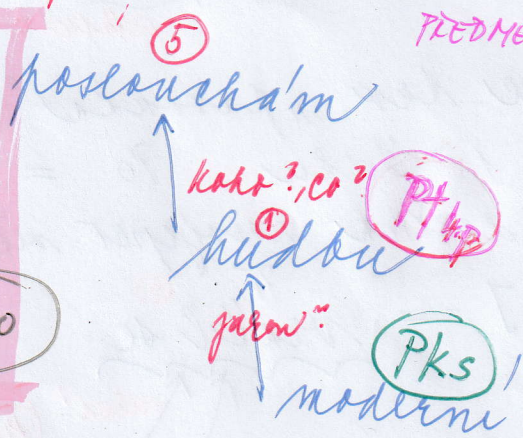 5
PŘEDMĚ
poslouchám
koho?, co?
Pt 4.p
1
hudbu
jakou?
Pks
moderní